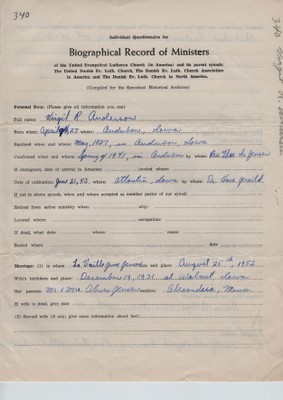 340
Individual Questionnaire for
Biographical Record of Ministers
of the United Evangelical Lutheran Church (in America) and its parent synods:
The United Danish Ev. Luth. Church, The Danish Ev. Luth. Church Association
in America and The Danish Ev. Luth. Church in North America.
(Compiled for the Synodical Historical Archives)
Personal Data: (Please give all information you can)
Full name: Virgil R. Anderson
Born when: April 27 where: Audubon, Iowa
Baptized when and where: May, 1927, in Audubon, Iowa
Confirmed when and where: Spring of 1941, in Audubon by whom: Rev.
If immigrant, date of arrival in America: located where:
Date of ordination: June 21, 53 where: Atlantic, Iowa by whom: Dr. Hans
If not in above synods, when and where accepted as member pastor of our synod:
Retired from active ministry when: why:
Located where: occupation:
If dead, what date: where: cause:
Buried where date
Marriage: (1) to whom: La Vaille June Jensen and place: August 25th, 1952
Wife's birthdate and place: December 19, 1931 at Walnut, Iowa
Her parents: Mr. & Mrs. location: Alexandria, Minn
If wife is dead, give date
(2) Second wife (if any), give same information about her: